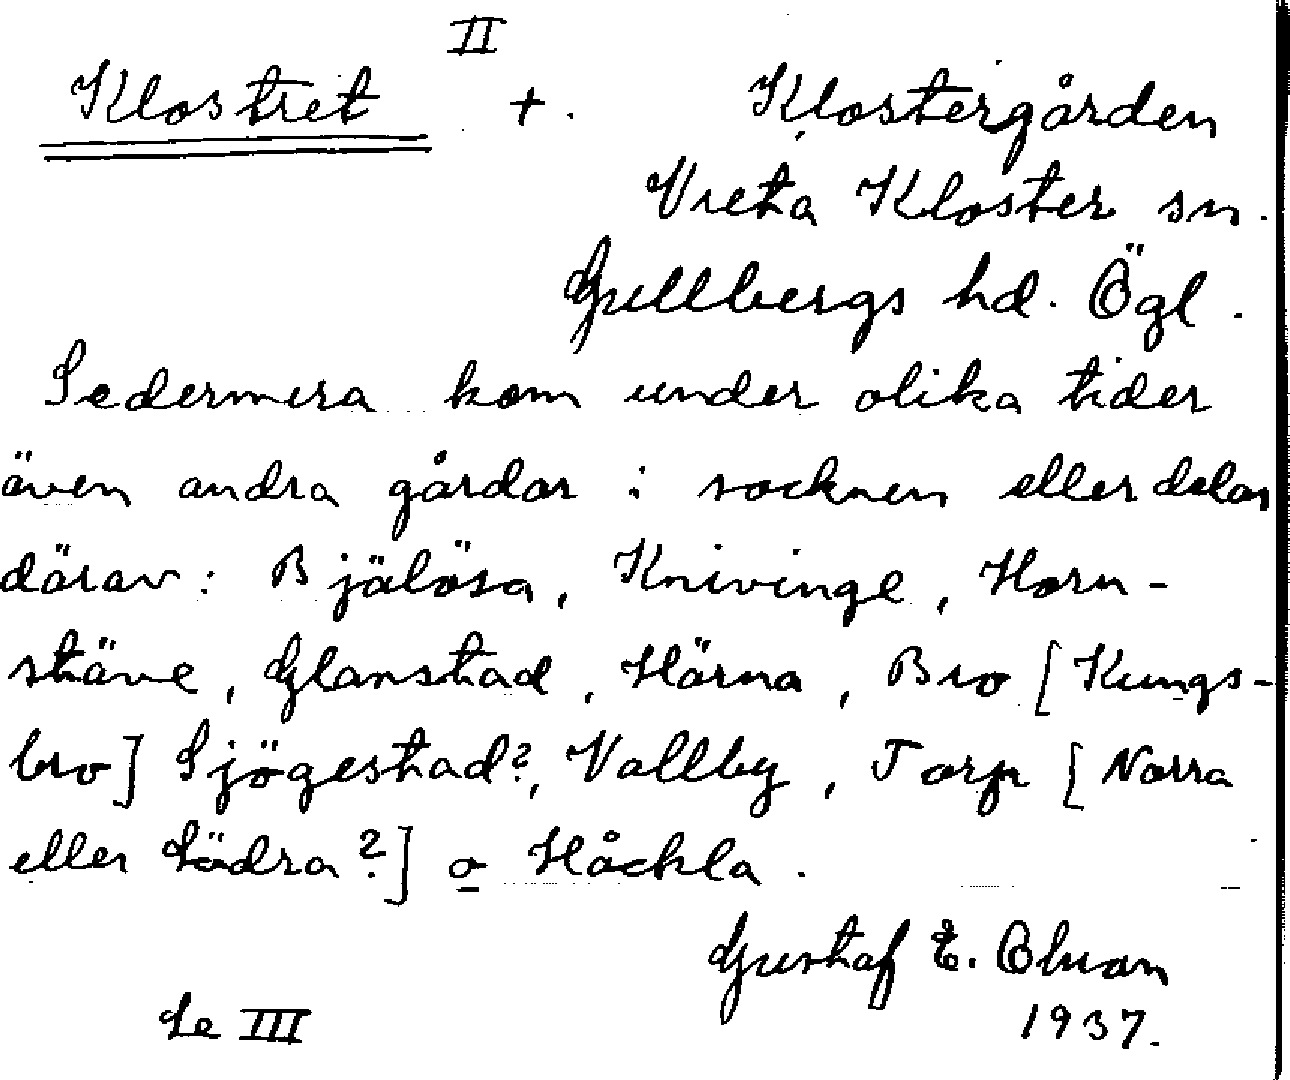 II
Klostret +. Klostergården
Vreta Kloster sn.
Gullbergs hd. Ögl.
Sedermera kom under olika tider
även andra gårdar i socknen eller delar
därav: Bjälösa, Knivinge, Horn-
stäve, Glanstad, Härna, Bro [Kungs-
bro] Sjögestad?, Vallby, Torp [Norra
eller Södra?] o Håckla.
Gustaf E. Olsson
Se III 1937.